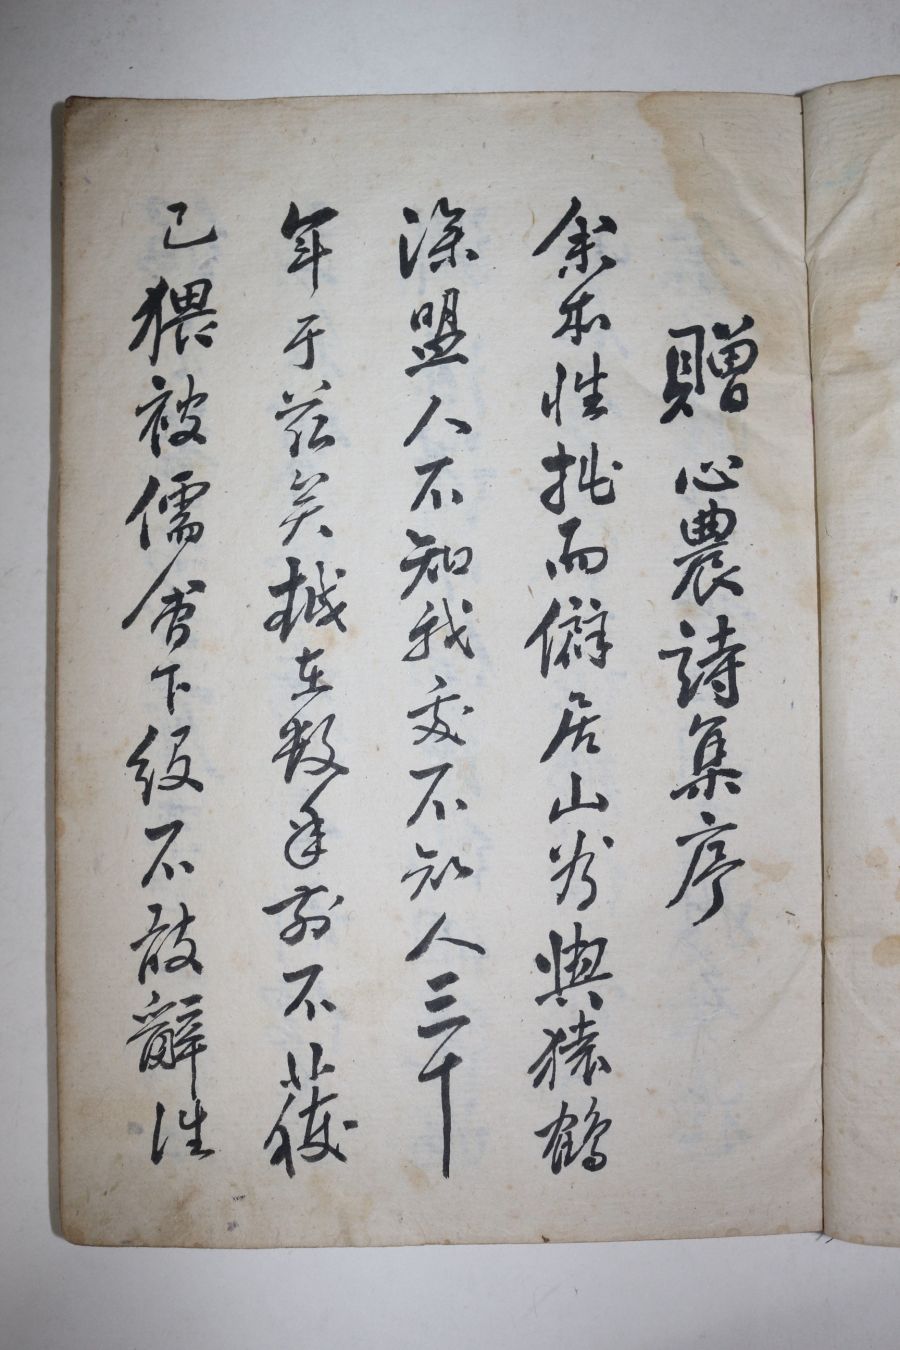 贈心農詩集序
余本性拙而僻居山爲與猿鶴
深盟人不知我交不知人三十
年于茲矣越在數年前不獲
已猥被儒會下級不敢辭往